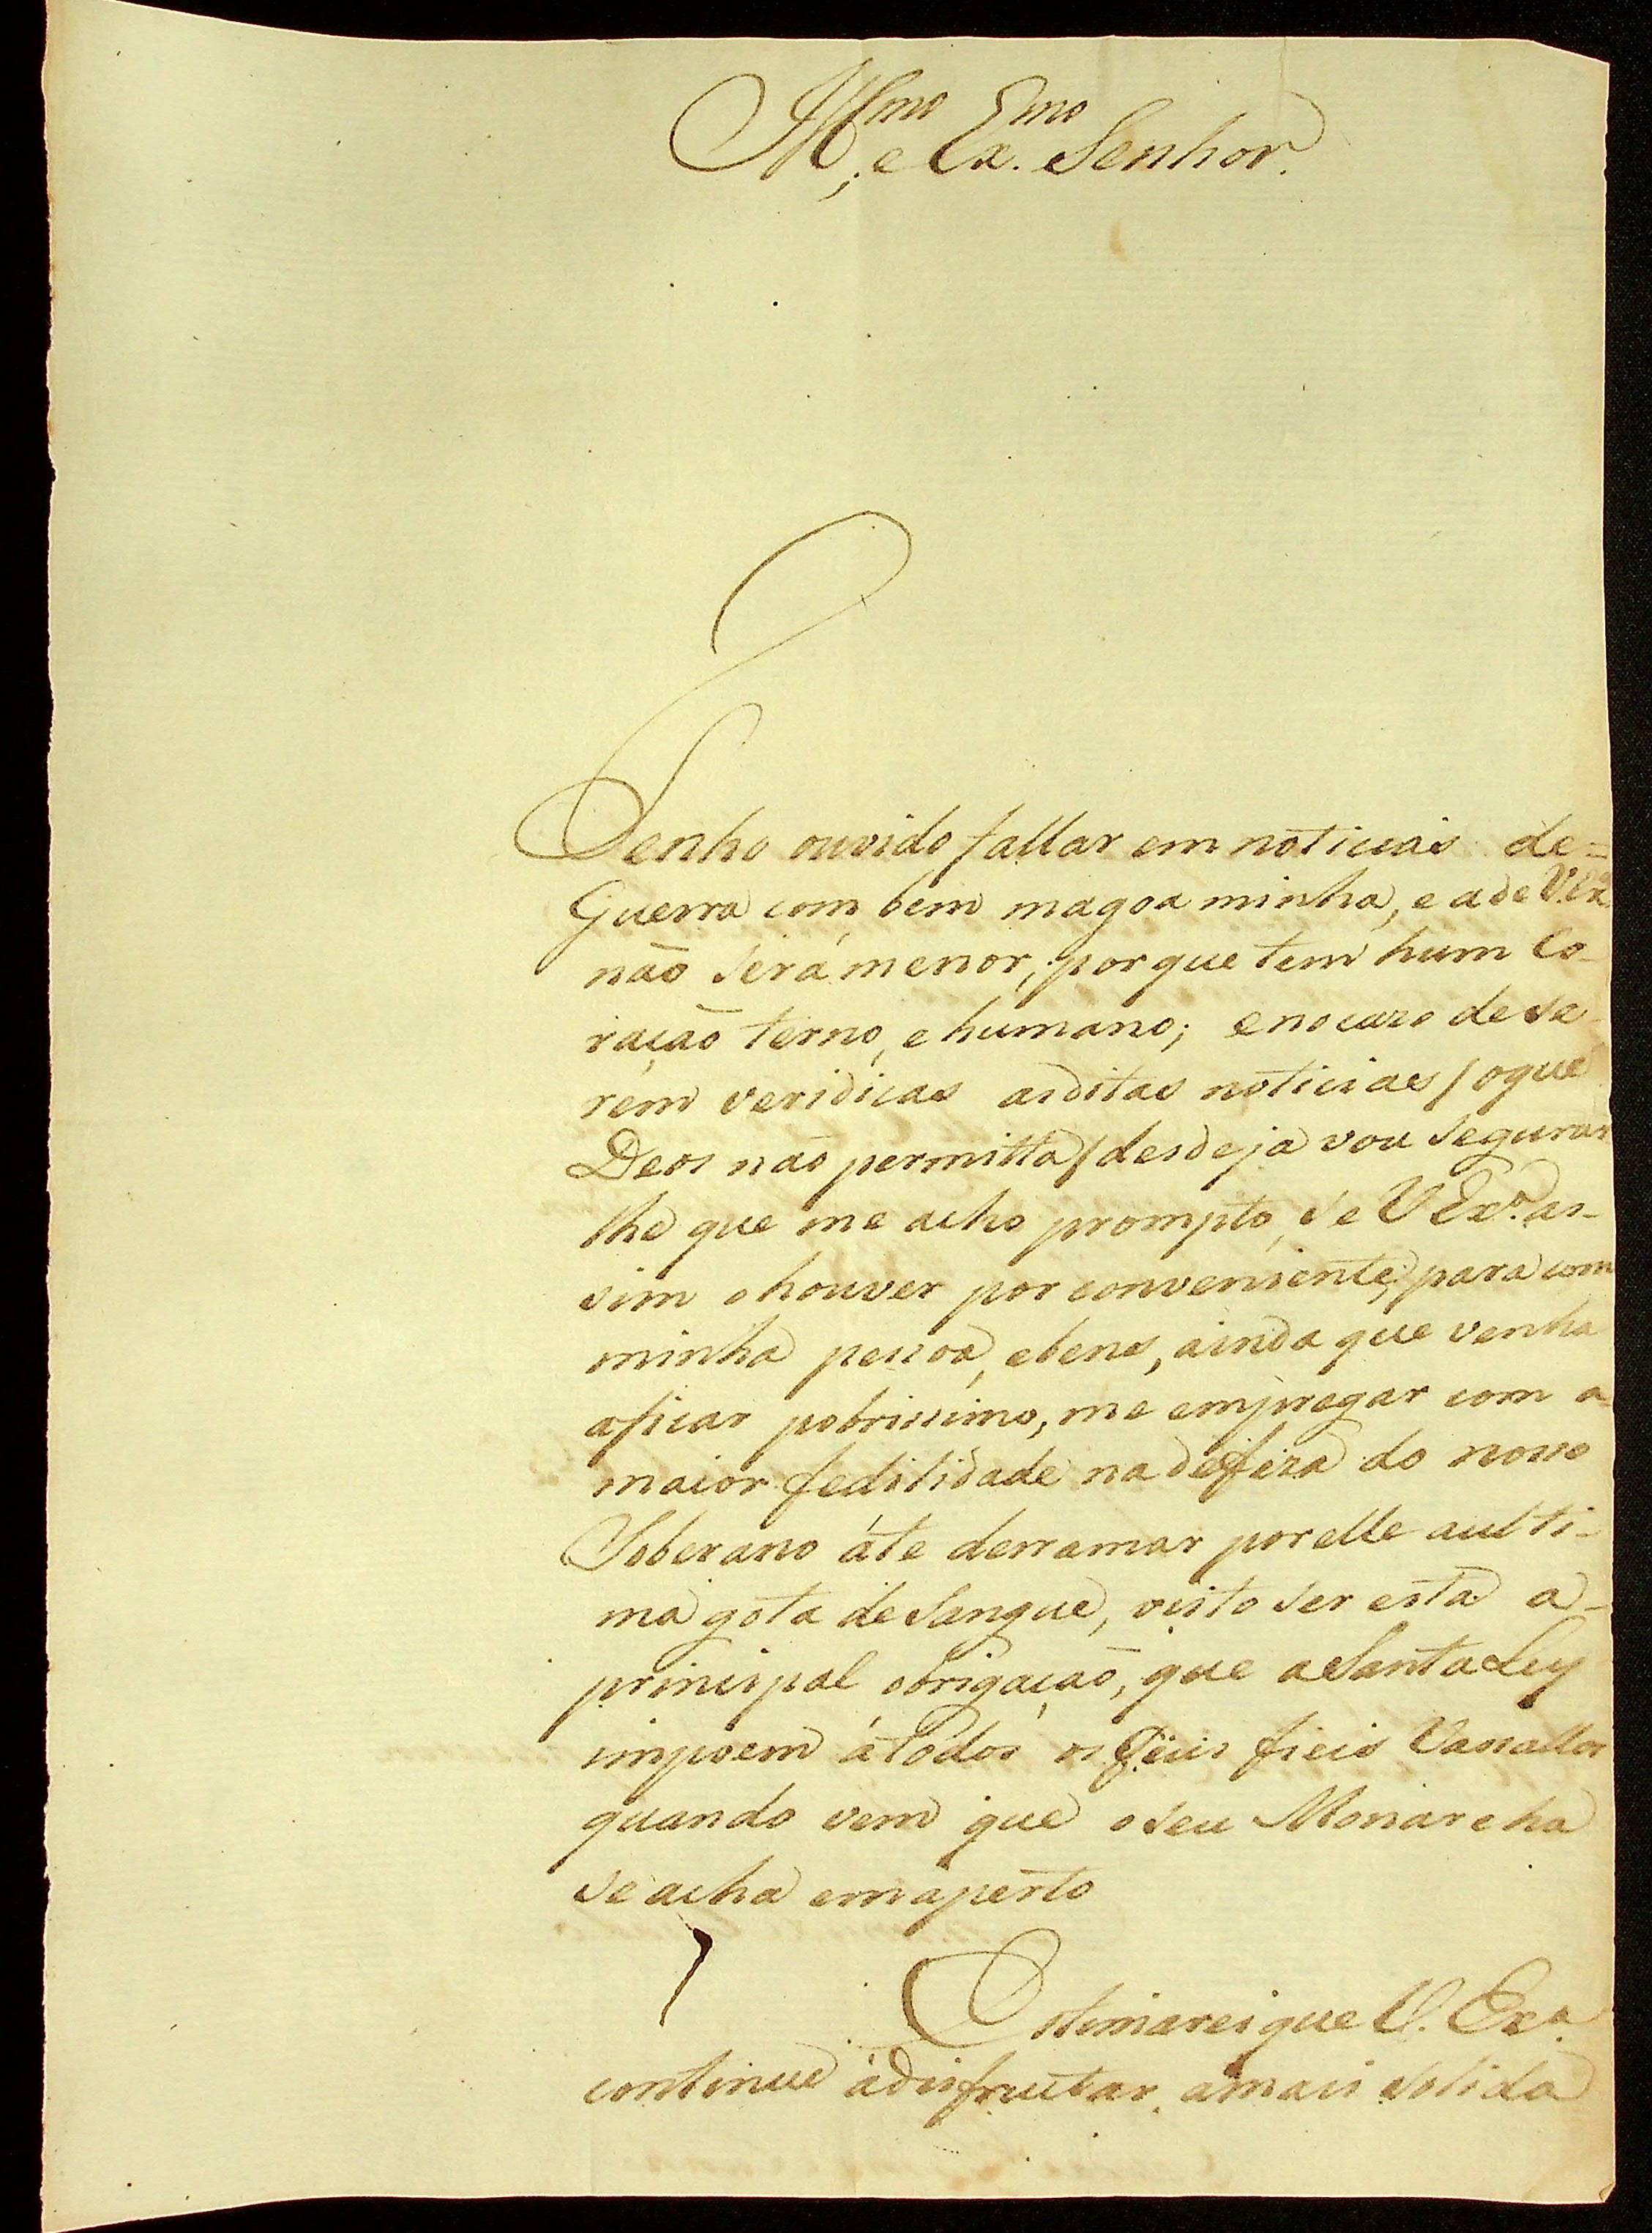 Ill.mo e Ex.mo Senhor.
Tenho ouvido fallar em noticias de=
Guerra com bem magoa minha, e a de V.Ex.ª
não será menor, porque tem hum Co-
ração terno, e humano; e no cazo de se-
rem veridicas as ditas noticias / o que
Deos não permitta / desde ja vou segurar
lhe que me acho prompto, se V Ex.ª as-
sim o houver por conveniente, para com
minha pessoa, e bens, ainda que venha
a ficar pobrissimo, me empregar com a
maior fedilidade na defeza do nosso
Soberano áte derramar por elle a ulti-
ma gota de sangue, visto ser esta a-
principal obrigação, que a Santa Ley
impoem á todos os seus fieis Vassallos
quando vem que o seu Monarcha
se acha em aperto
Estimarei que V. Ex.ª
continue á disfructar a mais solida